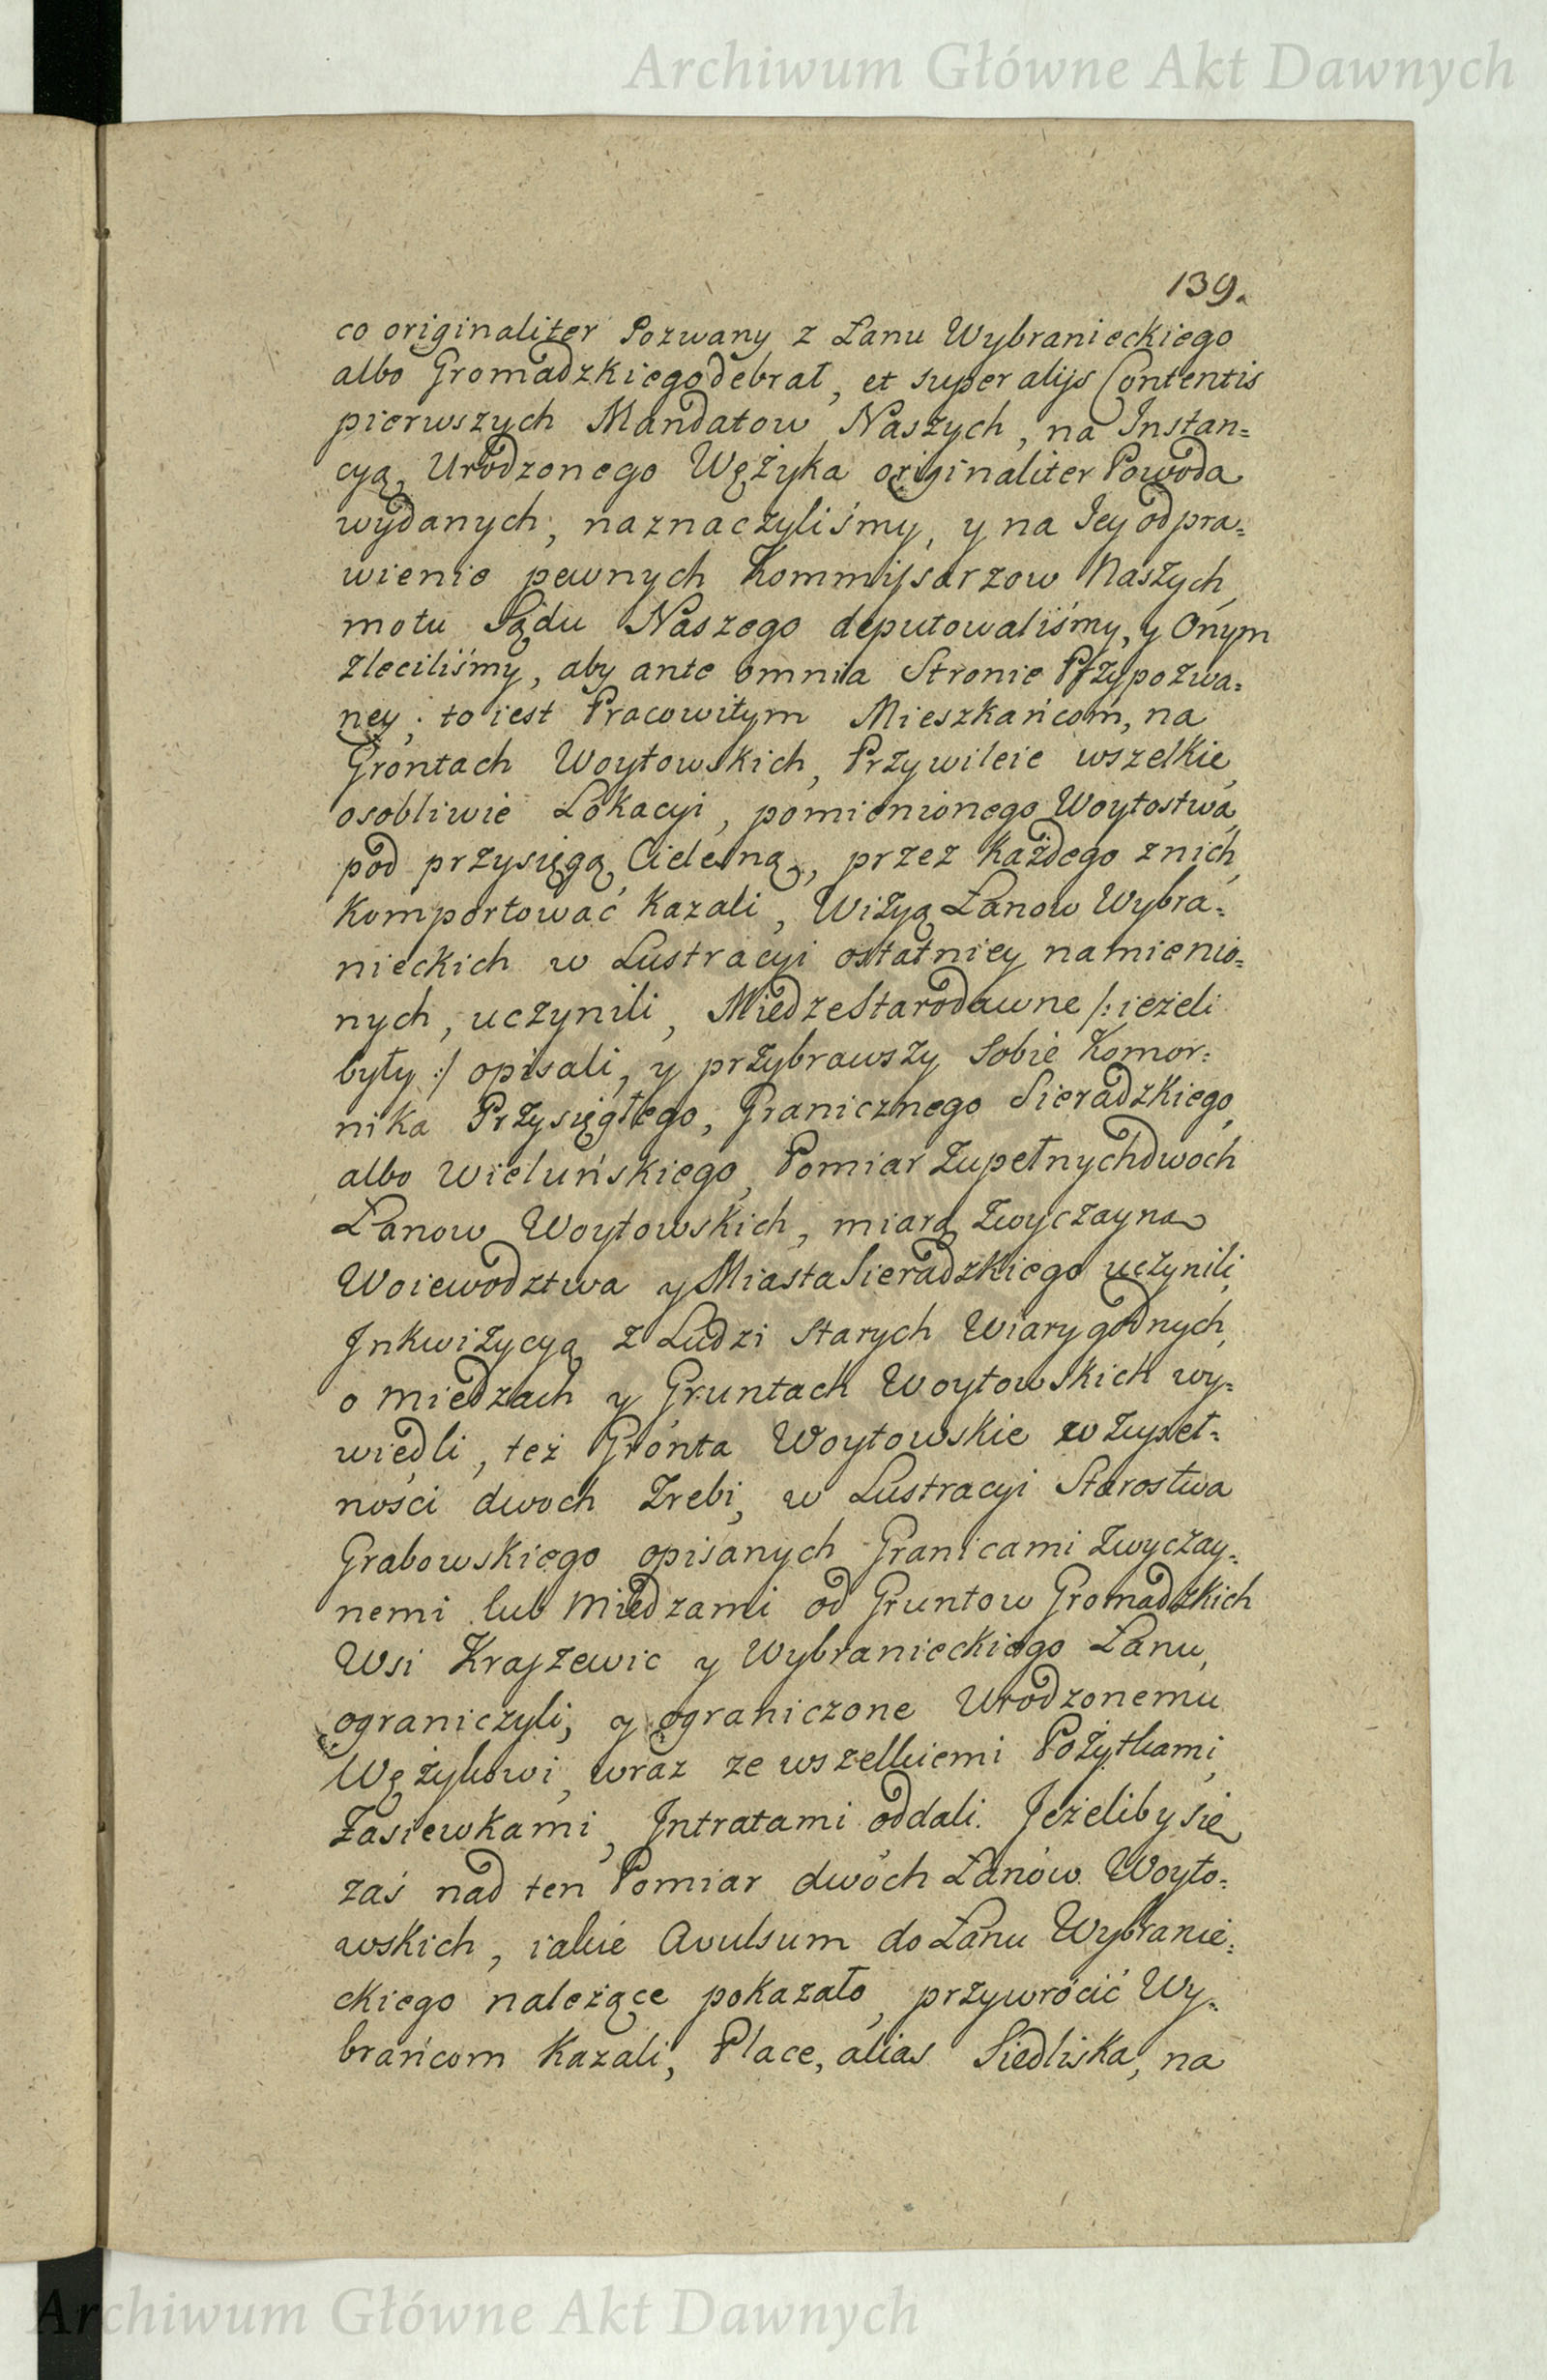 Archiwum Główne Akt Dawnych
139.
co originaliter Pozwany z Łanu Wybranieckiego
albo Gromadzkiego debrał, et super alijs Contentis
pierwszych Mandatow Naszych, na Instan=
cyą, Urodzonego Wężyka originaliter Powoda
wydanych, naznaczyliśmy, y na Iey odpra=
wienie pewnych Kommissarzow Naszych,
motu Sądu Naszego deputowaliśmy, y Onym
zleciliśmy, aby ante omnia Stronie Przypozwa=
ney; to iest Pracowitym Mieszkańcom, na
Gróntach Woytowskich, Przywileie wszelkie,
osobliwie Lokacyi, pomienionego Woytostwa,
pod przysięgą Cielesną, przez Każdego znich,
Komportować Kazali, Wizyą Łanow Wybra=
nieckich w Lustracyi ostatniey namienio=
nych, uczynili, Miedze Starodawne /: ieżeli
były :/ opisali, y przybrawszy Sobie Komor=
nika Przysięgłego, Granicznego Sieradzkiego,
albo Wieluńskiego, Pomiar Zupełnych dwoch
Łanow Woytowskich, miarą Zwyczayna
Woiewodztwa y Miasta Sieradzkiego uczynili,
Jnkwizycyą z Ludzi Starych Wiarygodnych,
o Miedzach y Gruntach Woytowskich wy=
wiedli, też Grónta Woytowskie w Zupeł=
ności dwoch Zrebi, w Lustracyi Starostwa
Grabowskiego opisanych Granicami Zwyczay=
nemi lub Miedzami od Gruntow Gromadzkich
Wsi Kraszewic y Wybranieckiego Łanu,
ograniczyli, y ograniczone Urodzonemu
Wężykowi, wraz ze wszelkiemi Pożytkami,
Zasiewkami, Jntratami oddali. Jeżeliby się
zaś nad ten Pomiar dwóch Łanów Woyto=
wskich, iakie Avulsum do Łanu Wybranie=
ckiego należące pokazało, przywrócić Wy=
brańcom Kazali, Place, alias Siedliska, na
Archiwum Główne Akt Dawnych